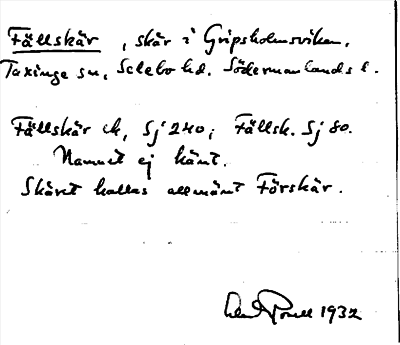 Fällskär, skär i Gripsholmsviken,
Taxinge sn, Selebo hd. Södermanlands l.
Fällskär ek, Sj 240; Fällsk. Sj 80.
Namnet ej känt.
Skäret kallas allmänt Förskär.
1932